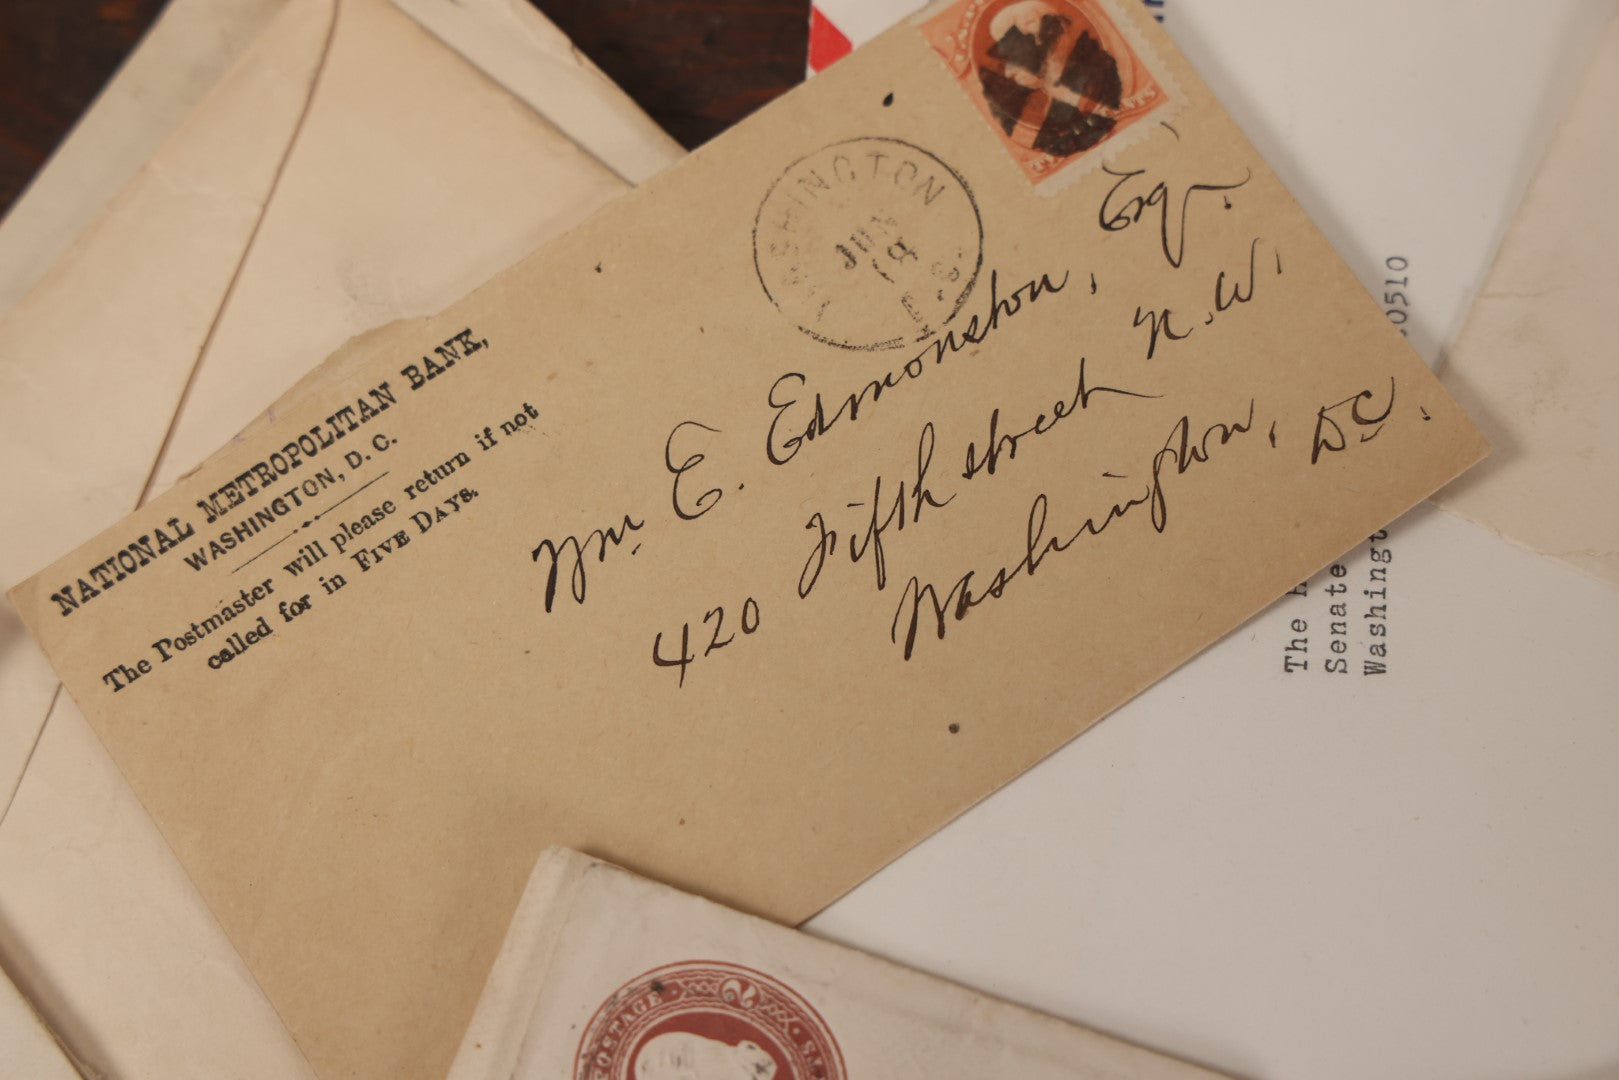 NATIONAL METROPOLITAN BANK,
WASHINGTON, D. C.
The Postmaster will please return if not
called for in FIVE DAYS.
WASHINGTON
18
D.C.
CENTS
Wm. E. Edmonston, Esq.
420 Fifth street N.W.
Washington, D.C.
0510
The
Senate
Washingt
POSTAGE